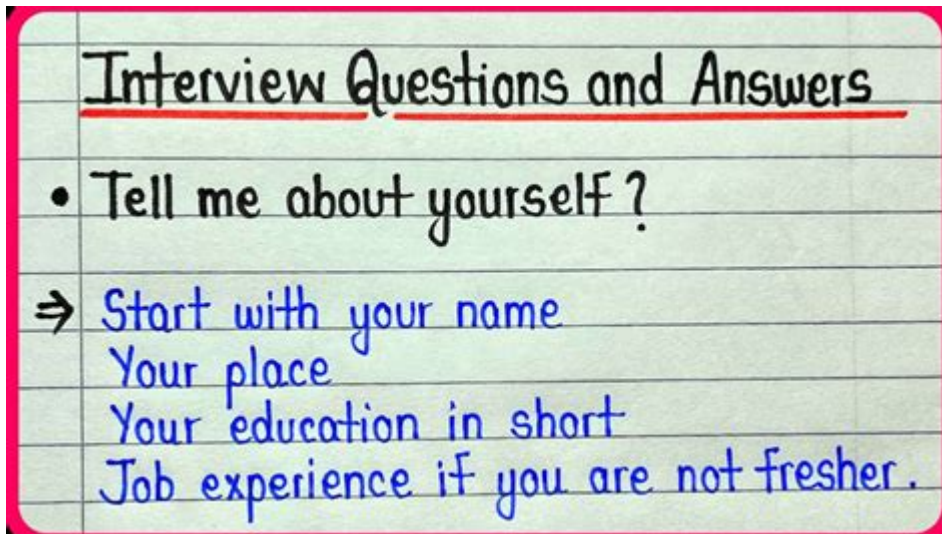 Interview Questions and Answers
• Tell me about yourself?
⇒ Start with your name
Your place
Your education in short
Job experience if you are not fresher.